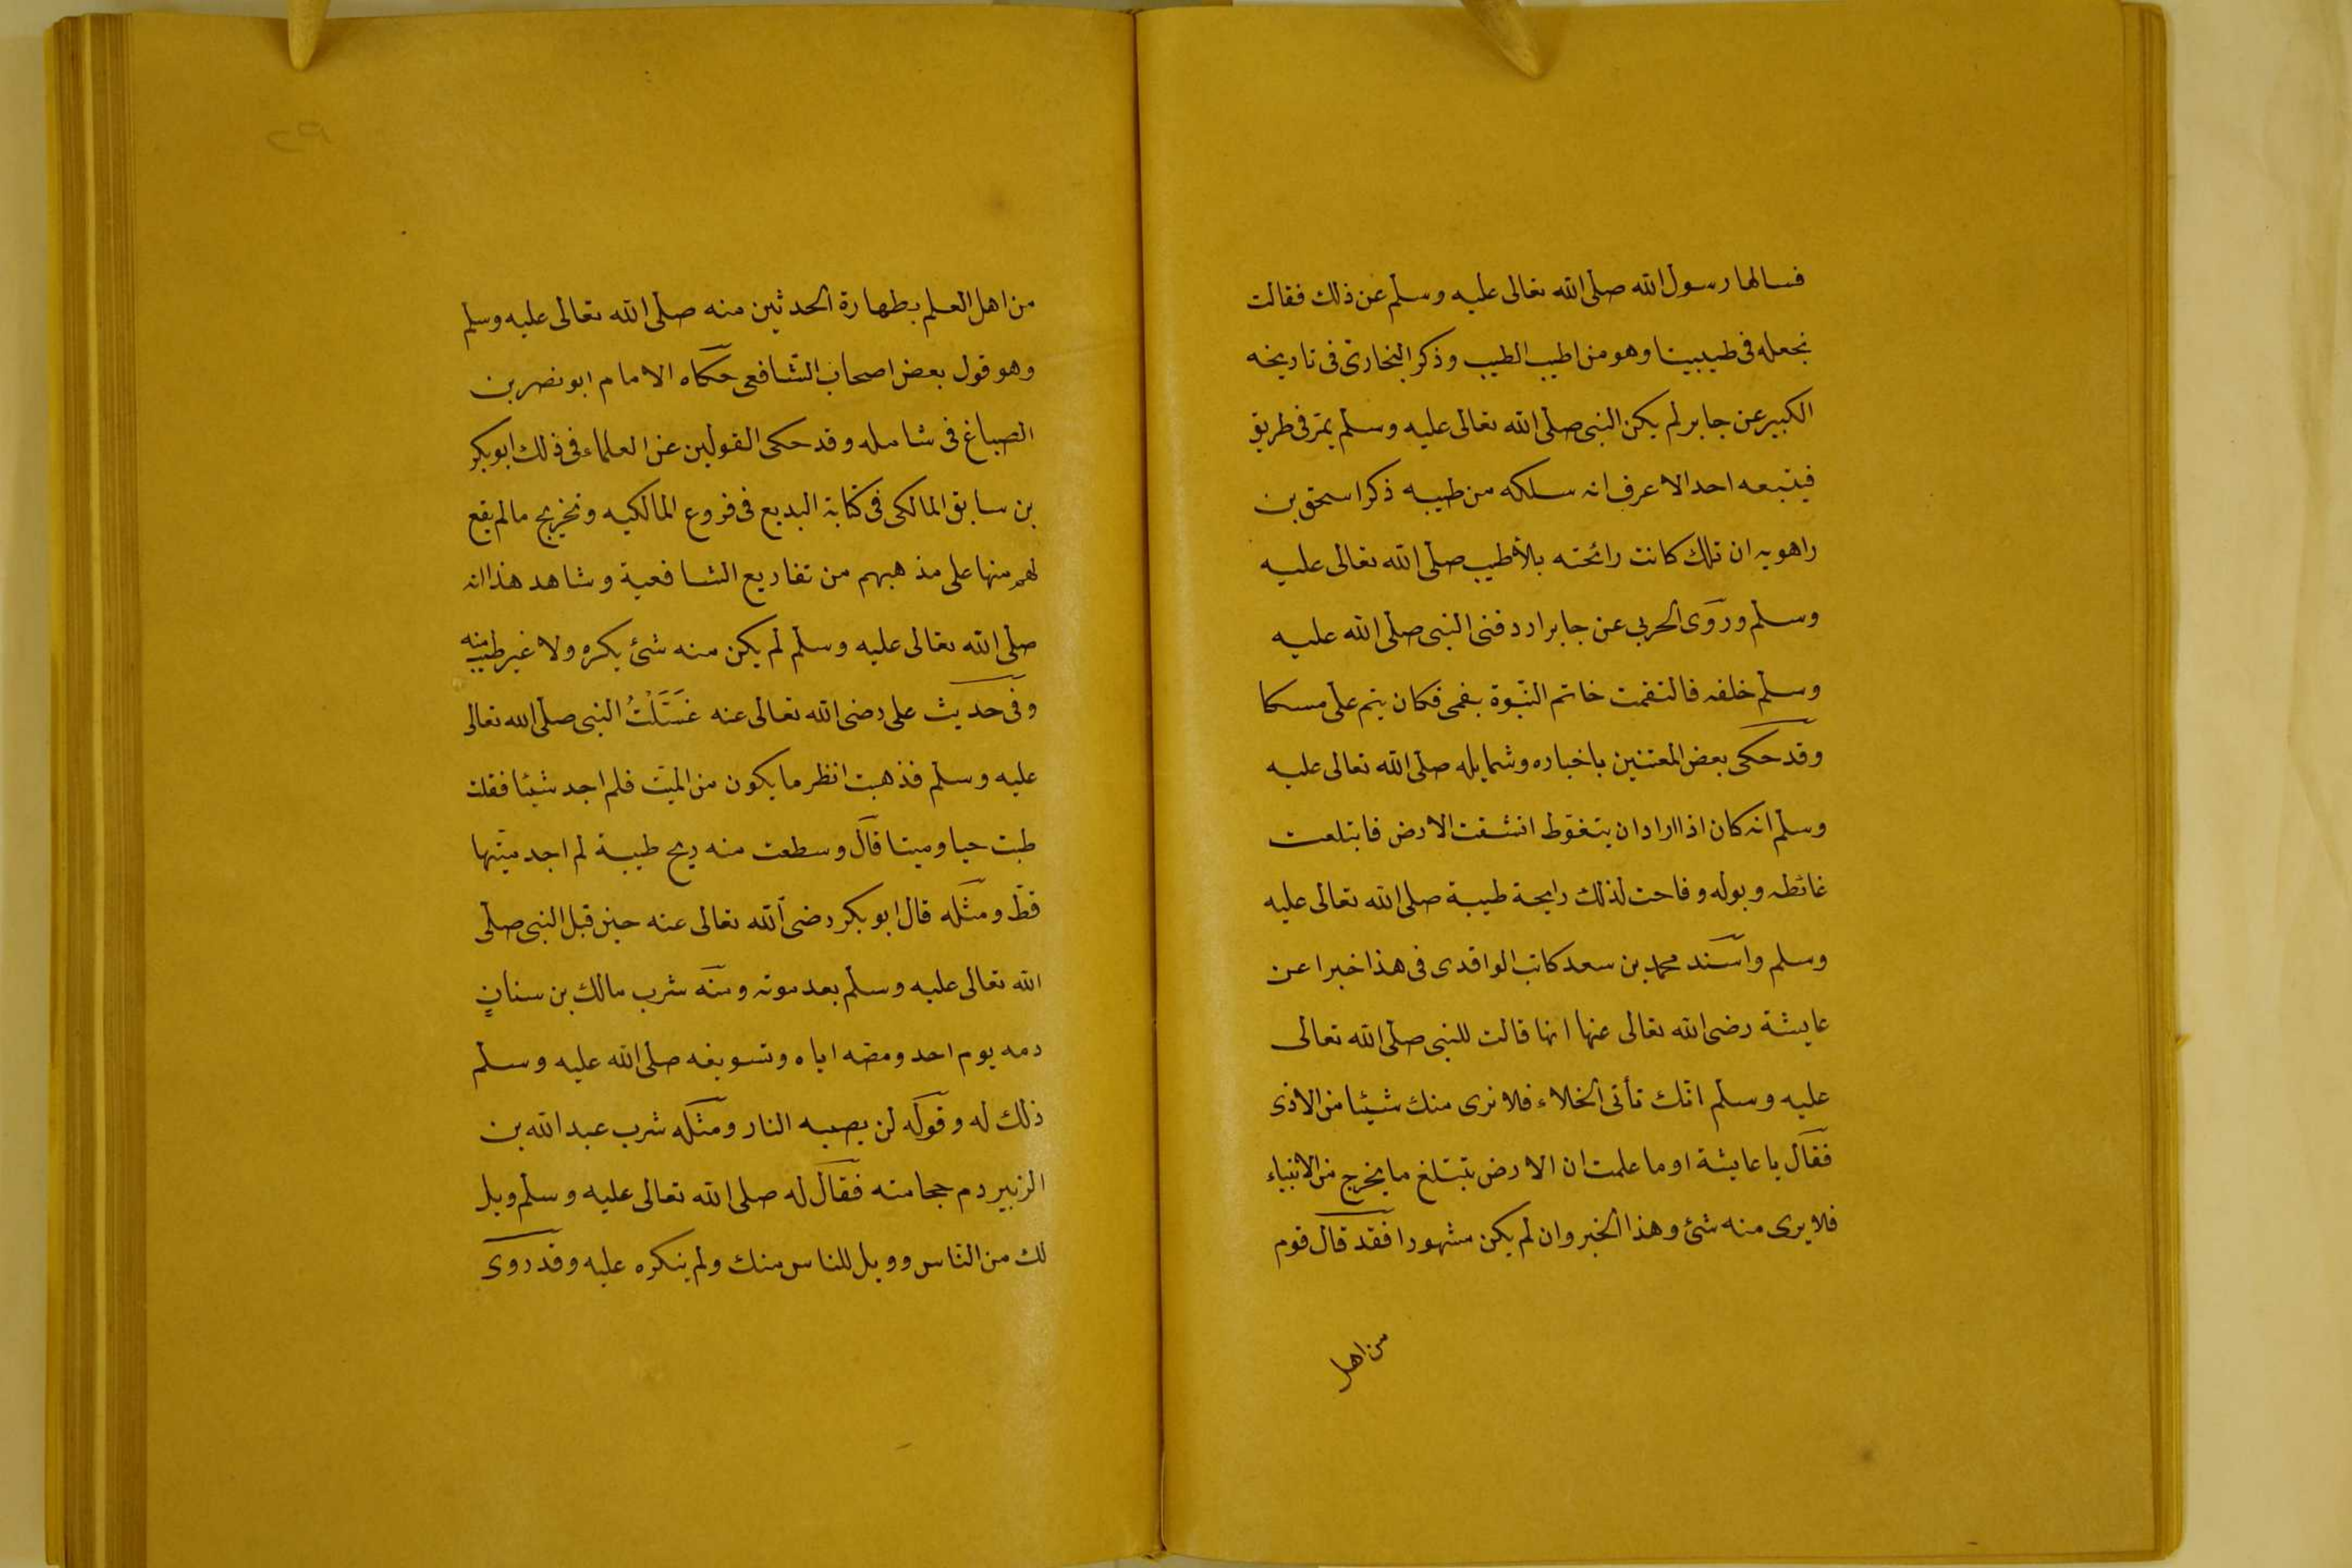 فسالها رسول الله صلى الله تعالى عليه وسلم عن ذلك فقالت
نجعله فى طيبيبنا وهو من اطيب الطيب وذكر البخارى فى تاريخه
الكبير عن جابر لم يكن النبى صلى الله تعالى عليه وسلم يمر فى طريق
فيتبعه احد الا عرف انه سلكه من طيبه ذكر اسحق بن
راهويه ان تلك كانت رائحته بلا طيب صلى الله تعالى عليه
وسلم وروى الحربى عن جابر اردفنى النبى صلى الله عليه
وسلم خلفه فالتقمت خاتم النبوة بفمى فكان ينم على مسكا
وقد حكى بعض المعتنين باخباره وشمايله صلى الله تعالى عليه
وسلم انه كان اذا اراد ان يتغوط انشقت الارض فابتلعت
غائطه وبوله وفاحت لذلك رايحة طيبة صلى الله تعالى عليه
وسلم واسند محمد بن سعد كاتب الواقدى فى هذا خبرا عن
عايشة رضى الله تعالى عنها انها قالت للنبى صلى الله تعالى
عليه وسلم انك تأتى الخلاء فلا نرى منك شيئا من الاذى
فقال يا عايشة او ما علمت ان الارض تبتلع ما يخرج من الانبياء
فلا يرى منه شئ وهذا الخبر وان لم يكن مشهورا فقد قال قوم
من اهل
٢٩
من اهل العلم بطهارة الحدثين منه صلى الله تعالى عليه وسلم
وهو قول بعض اصحاب الشافعى حكاه الامام ابو نصر بن
الصباغ فى شامله وقد حكى القولين عن العلماء فى ذلك ابو بكر
بن سابق المالكى فى كتابه البديع فى فروع المالكيه وتخريج مالم يقع
لهم منها على مذهبهم من تفاريع الشافعية وشاهد هذا انه
صلى الله تعالى عليه وسلم لم يكن منه شئ يكره ولا غير طيب منه
وفى حديث على رضى الله تعالى عنه غَسَّلْتُ النبى صلى الله تعالى
عليه وسلم فذهبت انظر ما يكون من الميت فلم اجد شيئا فقلت
طبت حيا وميتا قال وسطعت منه ريح طيبة لم اجد مثلها
قط ومثله قال ابو بكر رضى الله تعالى عنه حين قبل النبى صلى
الله تعالى عليه وسلم بعد موته ومنه شرب مالك بن سنانٍ
دمه يوم احد ومصه اياه وتسويغه صلى الله عليه وسلم
ذلك له وقوله لن يصيبه النار ومثله شرب عبد الله بن
الزبير دم حجامته فقال له صلى الله تعالى عليه وسلم ويل
لك من الناس وويل للناس منك ولم ينكره عليه وقد روى